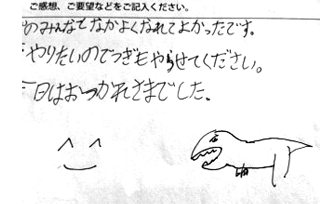 ご感想、ご要望などをご記入ください。
のみんなでなかよくなれてよかったです。
やりたいのでつぎもやらせてください。
一日はおつかれさまでした。